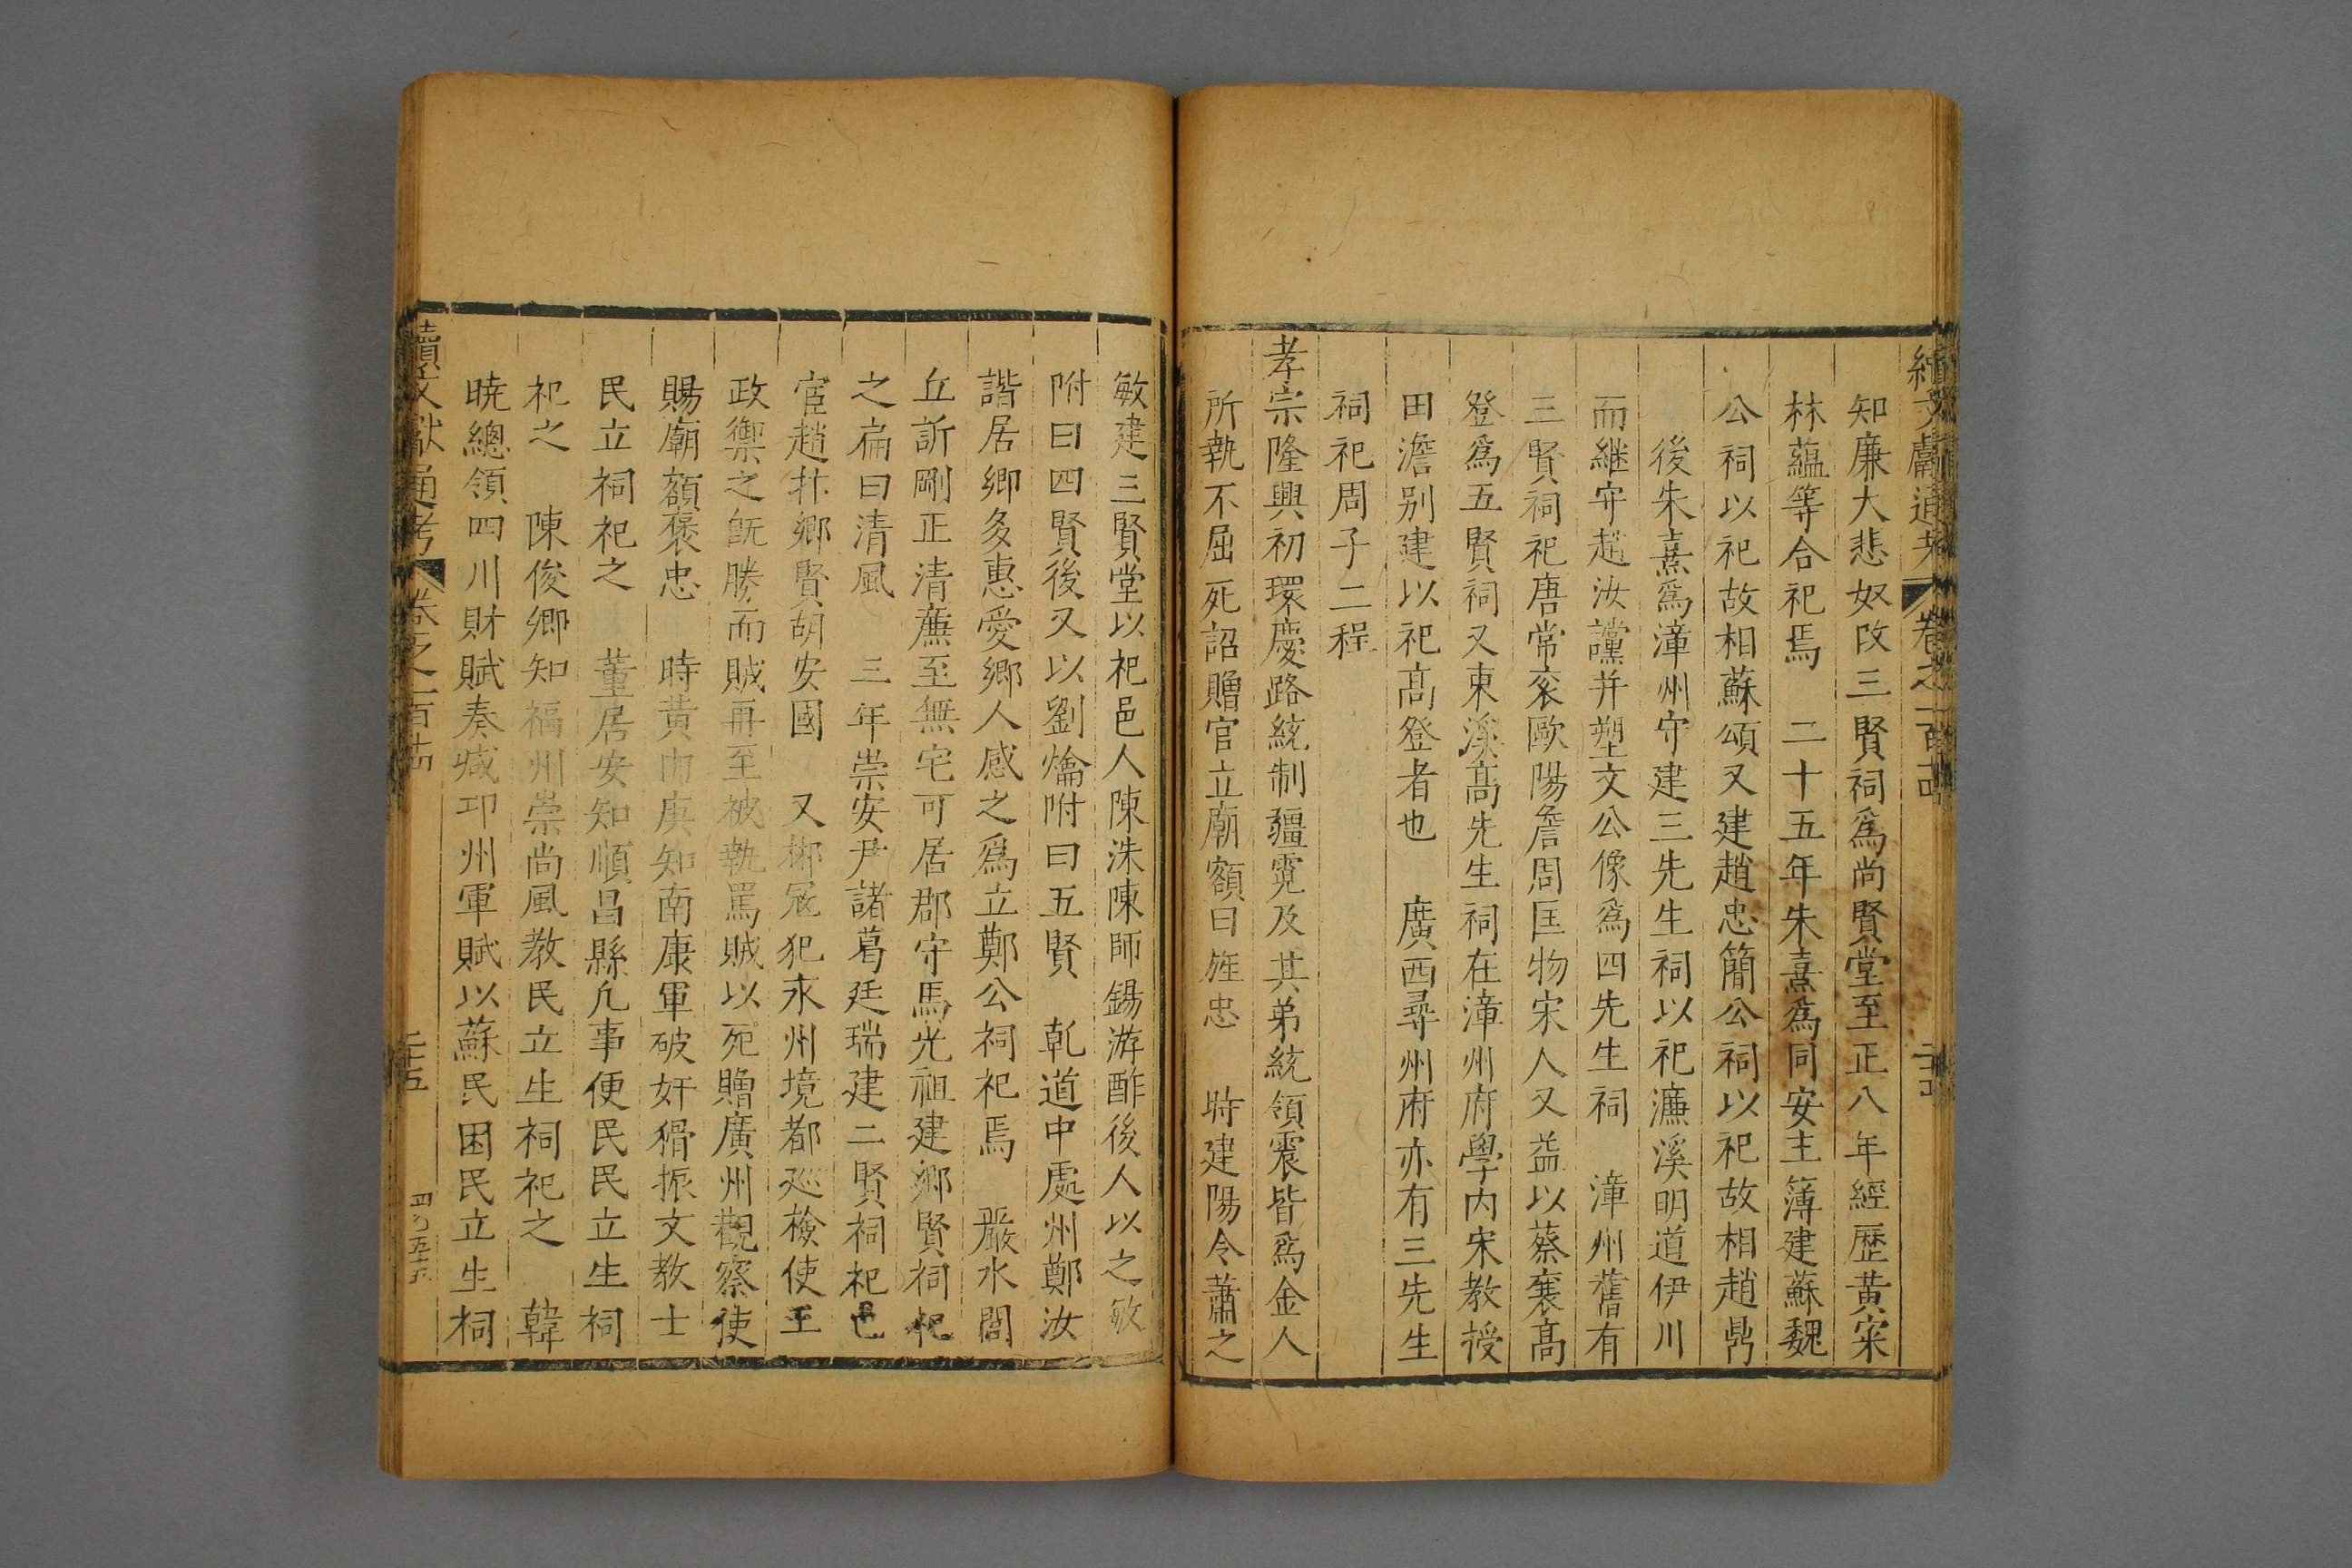 續文獻通考
卷之一百十四
知廉大悲奴改三賢祠爲尚賢堂至正八年經歷黄寀
林蘊等合祀焉　二十五年朱熹爲同安主簿建蘇魏
公祠以祀故相蘇頌又建趙忠簡公祠以祀故相趙鼎
後朱熹爲漳州守建三先生祠以祀濂溪明道伊川
而継守趙汝讜并塑文公像爲四先生祠　漳州舊有
三賢祠祀唐常衮歐陽詹周匡物宋人又益以蔡襄髙
登爲五賢祠又東溪髙先生祠在漳州府學内宋教授
田澹别建以祀髙登者也　廣西尋州府亦有三先生
祠祀周子二程
孝宗隆興初環慶路統制疆霓及其弟統領震皆爲金人
所執不屈死詔贈官立廟額曰旌忠　時建陽令蕭之
敏建三賢堂以祀邑人陳洙陳師錫游酢後人以之敏
附曰四賢後又以劉爚附曰五賢　乹道中處州鄭汝
諧居鄉多惠愛鄉人感之爲立鄭公祠祀焉　嚴水閭
丘訢剛正清廉至無宅可居郡守馬光祖建鄉賢祠祀
之扁曰清風　三年崇安尹諸葛廷瑞建二賢祠祀邑
宦趙抃鄉賢胡安國　又郴冦犯永州境都廵檢使王
政禦之旣勝而賊再至被執罵賊以死贈廣州觀察使
賜廟額褒忠　時黄由庚知南康軍破奸猾振文教士
民立祠祀之　董居安知順昌縣凢事便民民立生祠
祀之　陳俊卿知福州崇尚風教民立生祠祀之　韓
曉總領四川財賦奏减卭州軍賦以蘇民困民立生祠
續文獻通考
卷之一百十四
二十五
四百五十五